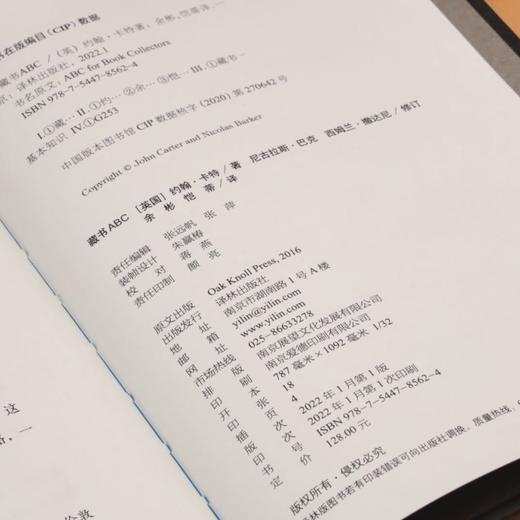 书在版编目（CIP）数据
藏书ABC /（英）约翰·卡特著；余彬，恺蒂译. —
京：译林出版社，2022.1
书名原文：ABC for Book Collectors
ISBN 978-7-5447-8562-4
Ⅰ.①藏… Ⅱ.①约… ②余… ③恺… Ⅲ.①藏书－
基本知识 Ⅳ.①G253
中国版本图书馆CIP数据核字（2020）第270642号
Copyright © John Carter and Nicolas Barker
藏书ABC ［英国］约翰·卡特／著 尼古拉斯·巴克 西姆兰·撒达尼／修订
余彬 恺蒂／译
责任编辑 张远帆 张萍
装帧设计 朱赢椿
校对 蒋燕
责任印制 颜亮
原文出版 Oak Knoll Press, 2016
出版发行 译林出版社
地址 南京市湖南路1号A楼
邮箱 yilin@yilin.com
网址 www.yilin.com
市场热线 025-86633278
排版 南京展望文化发展有限公司
印刷 南京爱德印刷有限公司
开本 787毫米×1092毫米 1/32
印张 18
插页 4
版次 2022年1月第1版
印次 2022年1月第1次印刷
书号 ISBN 978-7-5447-8562-4
定价 128.00元
版权所有·侵权必究
译林版图书若有印装错误可向出版社调换。质量热线：
这
，一
伦敦